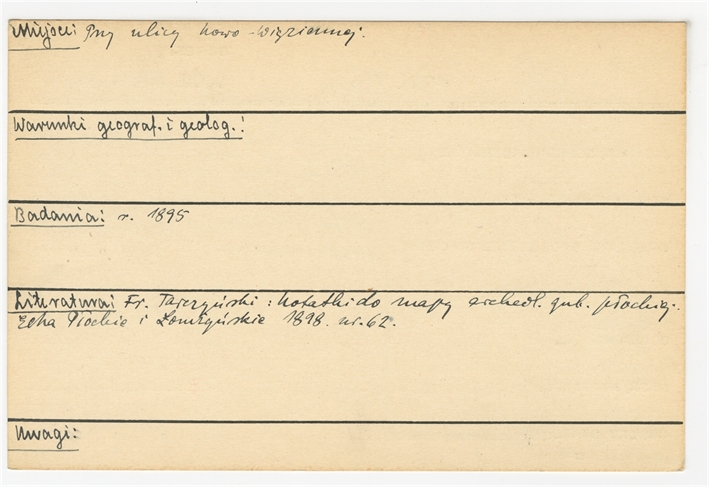 Miejsce: Przy ulicy Nowo-Więziennej.
Warunki geograf. i geolog.:
Badania: r. 1895
Literatura: Fr. Tarczyński: Notatki do mapy archeol. gub. płockiej.
Echa Płockie i Łomżyńskie 1898. nr. 62.
Uwagi: